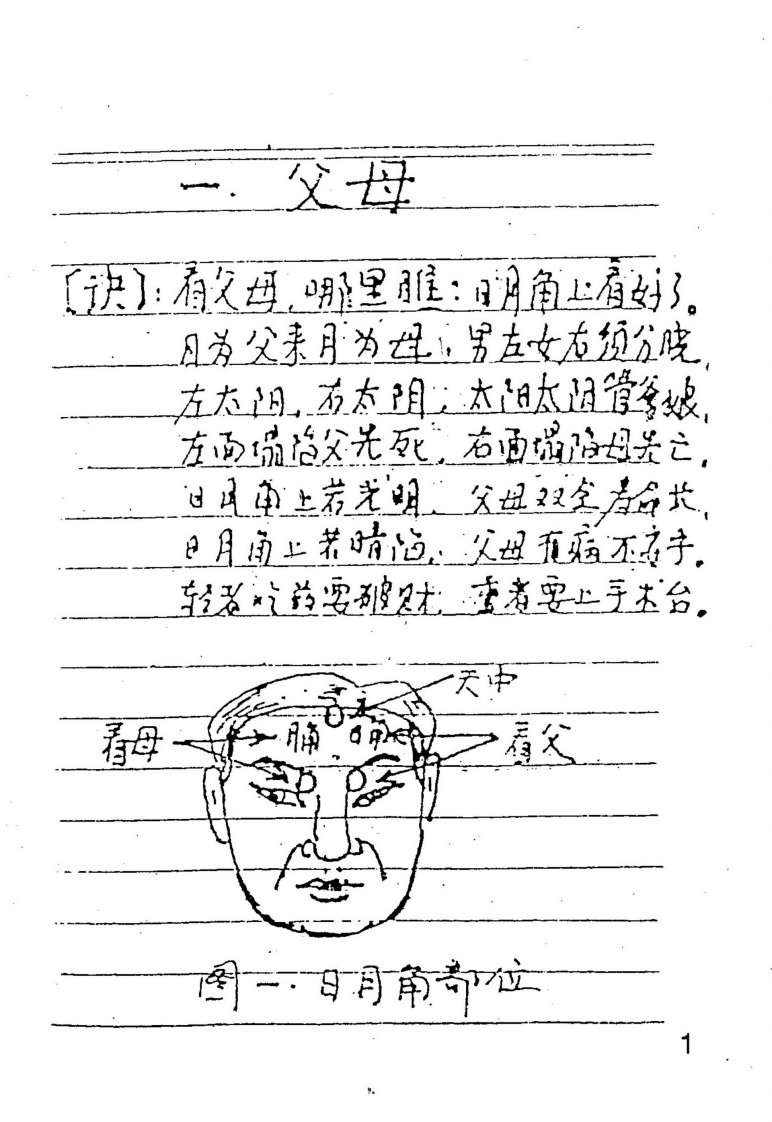 一.父母
[诀]:看父母,哪里瞧:日月角上看好了。
日为父来月为母,男左女右须分晓,
左太阳,右太阴,太阳太阴管爹娘,
左面塌陷父先死,右面塌陷母先亡,
日月角上若光明,父母双全寿命长,
日月角上若暗陷,父母有病不右手。
轻者吃药要破财,重者要上手术台。
天中
看母 月角 日角 看父
图一.日月角部位
1